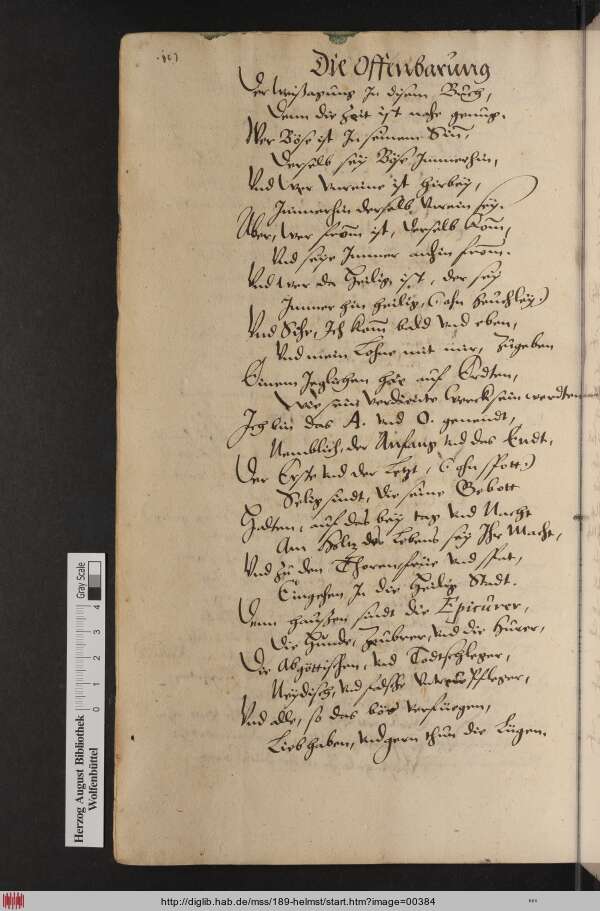 Die Offenbarung
Der Weissagung In disem Buch,
Denn die Zeit ist nahe genug.
Wer Böse ist In seinem Sin̄,
Derselb sey Böse Immerhin,
Vnd Wer Vnreine ist hierbey,
Immerhin derselb Vnrein sey.
Aber, wer from̄ ist, derselb kom̄,
Vnd seye Immer anhin from̄.
Vnd wer da Heilig ist, der sey
Immerhin heilig, (ohn heuchley.)
Vnd Sihe, Ich kom̄ bald vnd eben,
Vnd mein Lohne mit mir, Zugeben
Einem Jeglichen hie auf Erdten,
Wie sein Verdiente Werck sein werdten
Ich bin das A. vnd O. genendt,
Nemblich, der Anfang vnd das Endt,
Der Erste vnd der Letzt, (ohn spott.)
Selig sindt, die seine Gebott
Halten, auf das bey tag vnd Nacht
Am Holtz des Lebens sey Ihr Macht,
Vnd Zu den Thoren frue vnd spat,
Eingehen In die Heilig Stadt.
Denn haussen sindt die Epicurer,
Die Hunde, Zaubrer, vnd die Hurer,
Die Abgöttischen, vnd Todtschleger,
Neydisch, vnd falsche
Vnd alle, so das böß verfüegen,
Lieb haben, vnd gern thun die Lügen.
Herzog August Bibliothek
Wolfenbüttel
Gray Scale
0 1 2 3 4
http://diglib.hab.de/mss/189-helmst/start.htm?image=00384